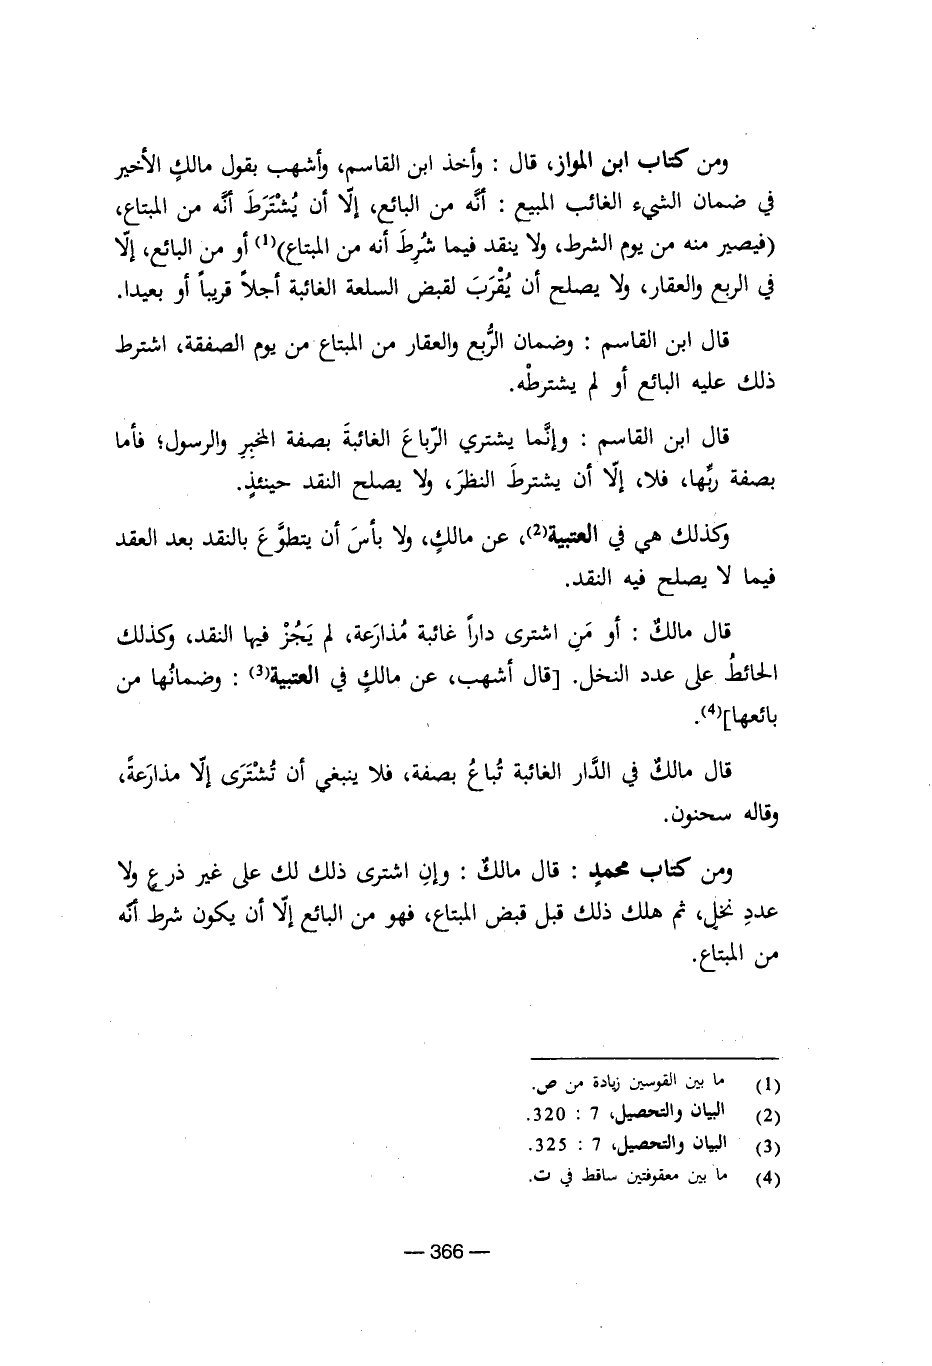 ومن كتاب ابن المواز، قال : وأخذ ابن القاسم، وأشهب بقول مالكٍ الأخير
في ضمان الشيء الغائب المبيع : أنَّه من البائع، إلّا أن يُشْتَرَطَ أنَّه من المبتاع،
(فيصير منه من يوم الشرط، ولا ينقد فيما شُرِطَ أنه من المبتاع)(1) أو من البائع، إلّا
في الربع والعقار، ولا يصلح أن يُقْرَبَ لقبض السلعة الغائبة أجلاً قريباً أو بعيدا.
قال ابن القاسم : وضمان الرُّبع والعقار من المبتاع من يوم الصفقة، اشترط
ذلك عليه البائع أو لم يشترطْه.
قال ابن القاسم : وإنَّما يشتري الرّباعَ الغائبةَ بصفة المخبِرِ والرسول؛ فأما
بصفة ربِّها، فلا، إلّا أن يشترطَ النظرَ، ولا يصلح النقد حينئذٍ.
وكذلك هي في العتبية(2)، عن مالكٍ، ولا بأسَ أن يتطوَّعَ بالنقد بعد العقد
فيما لا يصلح فيه النقد.
قال مالكٌ : أو مَنِ اشترى داراً غائبة مُذارَعة، لم يَجُزْ فيها النقد، وكذلك
الحائطُ على عدد النخل. [قال أشهب، عن مالكٍ في العتبية(3) : وضمانُها من
بائعها](4).
قال مالكٌ في الدَّار الغائبة تُباعُ بصفة، فلا ينبغي أن تُشْتَرَى إلّا مذارَعةً،
وقاله سحنون.
ومن كتاب محمدٍ : قال مالكٌ : وإنِ اشترى ذلك لك على غير ذرعٍ ولا
عددِ نخلٍ، ثم هلك ذلك قبل قبض المبتاع، فهو من البائع إلّا أن يكون شرط أنّه
من المبتاع.
(1) ما بين القوسين زيادة من ص.
(2) البيان والتحصيل، 7 : 320.
(3) البيان والتحصيل، 7 : 325.
(4) ما بين معقوفتين ساقط في ت.
— 366 —